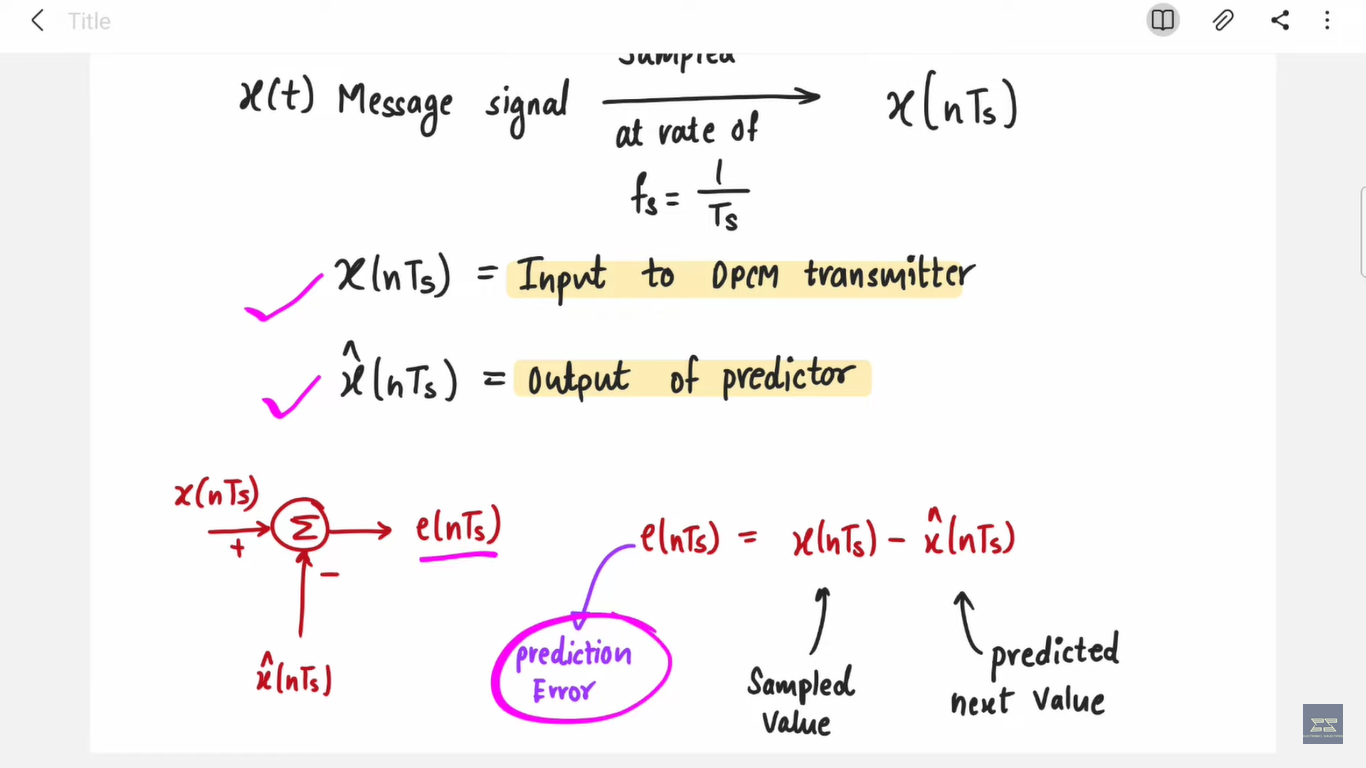 Title
Sampled
x(t) Message signal ⟶ x(nTs)
at rate of
fs = 1/Ts
x(nTs) = Input to DPCM transmitter
x̂(nTs) = Output of predictor
x(nTs)
+
Σ
e(nTs)
−
x̂(nTs)
e(nTs) = x(nTs) − x̂(nTs)
prediction
Error
Sampled
Value
predicted
next Value